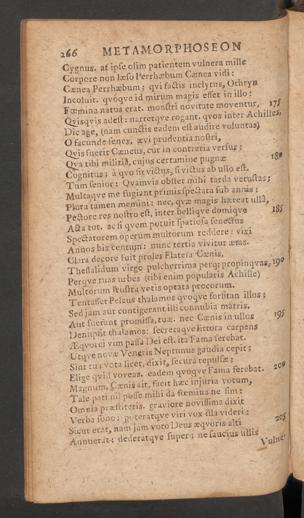 266 METAMORPHOSEON
Cygnus. at ipse olim patientem vulnera mille
Corpore non læso Perrhæbum Cænea vidi:
Cænea Perrhæbum; qvi factis inclytus, Othryn
Incoluit. qvoqve id mirum magis esset in illo:
Fœmina natus erat. monstri novitate moventur, 175
Qvisqvis adest: narretqve rogant. qvos inter Achilles,
Dic age, (nam cunctis eadem est audire voluntas)
O facunde senex, ævi prudentia nostri,
Qvis fuerit Cæneus, cur in contraria versus;
Qva tibi militiâ, cujus certamine pugnæ 180
Cognitus; à qvo sit victus, si victus ab ullo est.
Tum senior; Qvamvis obstet mihi tarda vetustas;
Multaqve me fugiant primis spectata sub annis;
Plura tamen memini: nec, qvæ magis hæreat ullâ,
Pectore res nostro est, inter belliqve domiqve 185
Acta tot. ac si qvem potuit spatiosa senectus
Spectatorem operum multorum reddere: vixi
Annos bis centum: nunc tertia vivitur ætas.
Clara decore fuit proles Elateïa Cænis.
Thessalidum virgo pulcherrima perqv; propinqvas, 190
Perqve tuas urbes (tibi enim popularis Achille)
Multorum frustra votis optata procorum.
Tentasset Peleus thalamos qvoqve forsitan illos;
Sed jam aut contigerant illi connubia matris,
Aut fuerant promissa, tuæ. nec Cænis in ullos 195
Denupsit thalamos: secretaqve littora carpens
Æqvorei vim passa Dei est. ita Fama ferebat.
Utqve novæ Veneris Neptunus gaudia cepit;
Sint tua vota licet, dixit, secura repulsæ;
Elige qvid voveas. eadem qvoqve Fama ferebat. 200
Magnum, Cænis ait, facit hæc injuria votum,
Tale pati nil posse mihi da fœmina ne sim:
Omnia præstiteris. graviore novissima dixit
Verba sono: poteratqve viri vox illa videri:
Sicut erat, nam jam voto Deus æqvoris alti 205
Annuerat: dederatqve super; ne saucius ullis
Vulne-